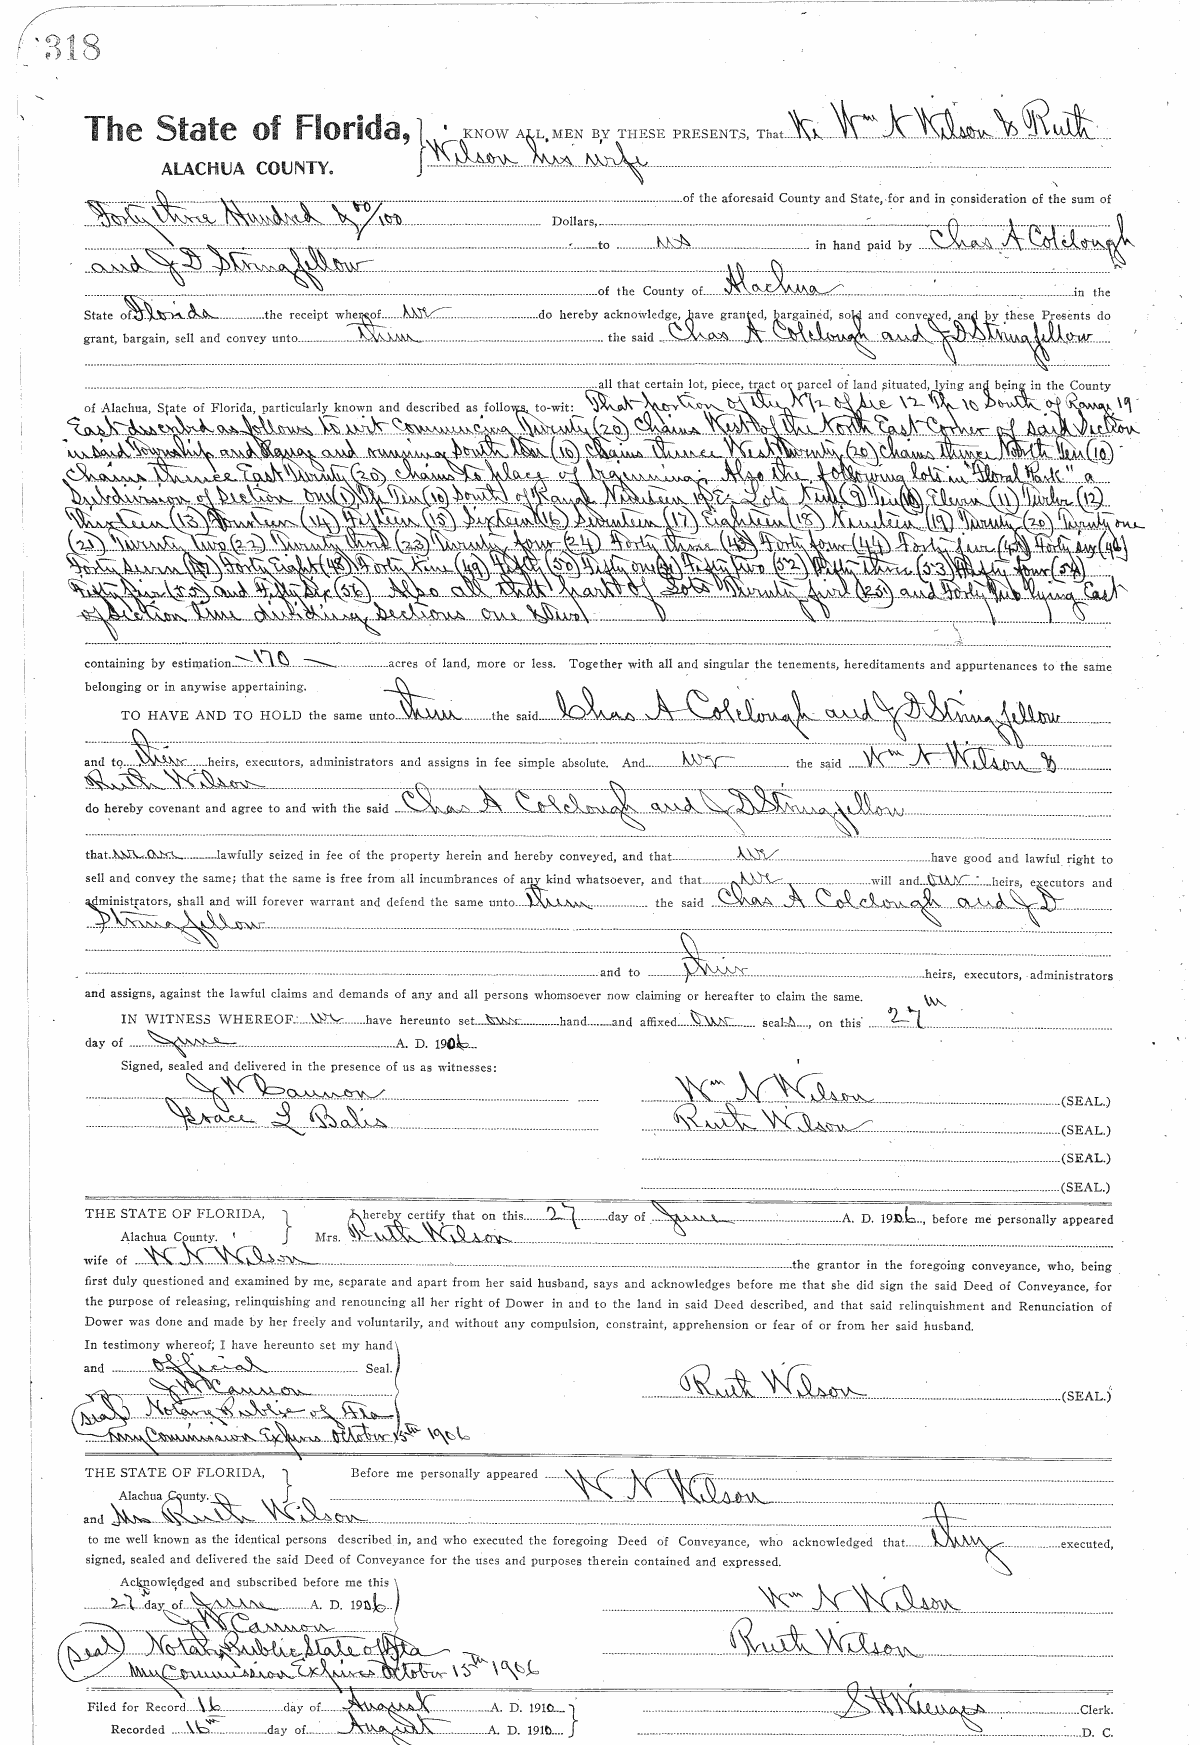 318
The State of Florida, KNOW ALL MEN BY THESE PRESENTS, That We Wm N Wilson & Ruth
ALACHUA COUNTY. Wilson his wife
of the aforesaid County and State, for and in consideration of the sum of
Forty three Hundred & 00/100 Dollars,
to us in hand paid by Chas A Colclough
and J D Stringfellow
of the County of Alachua in the
State of Florida the receipt whereof we do hereby acknowledge, have granted, bargained, sold and conveyed, and by these Presents do
grant, bargain, sell and convey unto them the said Chas A Colclough and J D Stringfellow
all that certain lot, piece, tract or parcel of land situated, lying and being in the County
of Alachua, State of Florida, particularly known and described as follows, to-wit: That portion of the N/2 of Sec 12 Tp 10 South of Range 19
East described as follows to wit Commencing Twenty (20) Chains West of the North East Corner of said Section
in said Township and Range and running South Ten (10) Chains thence West Twenty (20) chains thence North Ten (10)
Chains thence East Twenty (20) chains to place of beginning. Also the following lots in "Floral Park" a
Subdivision of Section One (1) Tp Ten (10) South of Range Nineteen 19 E: Lots Nine (9) Ten (10) Eleven (11) Twelve (12)
Thirteen (13) Fourteen (14) Fifteen (15) Sixteen (16) Seventeen (17) Eighteen (18) Nineteen (19) Twenty (20) Twenty one
(21) Twenty two (22) Twenty third (23) Twenty four (24) Forty three (43) Forty four (44) Forty five (45) Forty six (46)
Forty seven (47) Forty Eight (48) Forty Nine (49) Fifty (50) Fifty one (51) Fifty two (52) Fifty three (53) Fifty four (54)
Fifty five (55) and Fifty Six (56) Also all that part of Lots Twenty five (25) and Forty lying East
of Section line dividing sections one & two
containing by estimation 170 acres of land, more or less. Together with all and singular the tenements, hereditaments and appurtenances to the same
belonging or in anywise appertaining.
TO HAVE AND TO HOLD the same unto them the said Chas A Colclough and J D Stringfellow
and to their heirs, executors, administrators and assigns in fee simple absolute. And we the said Wm N Wilson &
Ruth Wilson
do hereby covenant and agree to and with the said Chas A Colclough and J D Stringfellow
that we are lawfully seized in fee of the property herein and hereby conveyed, and that we have good and lawful right to
sell and convey the same; that the same is free from all incumbrances of any kind whatsoever, and that we will and our heirs, executors and
administrators, shall and will forever warrant and defend the same unto them the said Chas A Colclough and J D
Stringfellow
and to their heirs, executors, administrators
and assigns, against the lawful claims and demands of any and all persons whomsoever now claiming or hereafter to claim the same.
IN WITNESS WHEREOF we have hereunto set our hand and affixed our seals, on this 27th
day of June A. D. 1906
Signed, sealed and delivered in the presence of us as witnesses:
J W Cannon Wm N Wilson (SEAL.)
Grace L Balis Ruth Wilson (SEAL.)
(SEAL.)
(SEAL.)
THE STATE OF FLORIDA, I hereby certify that on this 27 day of June A. D. 1906, before me personally appeared
Alachua County. Mrs. Ruth Wilson
wife of W N Wilson the grantor in the foregoing conveyance, who, being
first duly questioned and examined by me, separate and apart from her said husband, says and acknowledges before me that she did sign the said Deed of Conveyance, for
the purpose of releasing, relinquishing and renouncing all her right of Dower in and to the land in said Deed described, and that said relinquishment and Renunciation of
Dower was done and made by her freely and voluntarily, and without any compulsion, constraint, apprehension or fear of or from her said husband.
In testimony whereof, I have hereunto set my hand
and official Seal.
J W Cannon Ruth Wilson (SEAL.)
(Seal) Notary Public of Fla
My Commission Expires October 15th 1906
THE STATE OF FLORIDA, Before me personally appeared W N Wilson
Alachua County.
and Mrs Ruth Wilson
to me well known as the identical persons described in, and who executed the foregoing Deed of Conveyance, who acknowledged that they executed,
signed, sealed and delivered the said Deed of Conveyance for the uses and purposes therein contained and expressed.
Acknowledged and subscribed before me this
27th day of June A. D. 1906 Wm N Wilson
J W Cannon
(Seal) Notary Public State of Fla Ruth Wilson
My Commission Expires October 15th 1906
Filed for Record 16 day of August A. D. 1910 S H Wienges Clerk.
Recorded 16th day of August A. D. 1910 D. C.